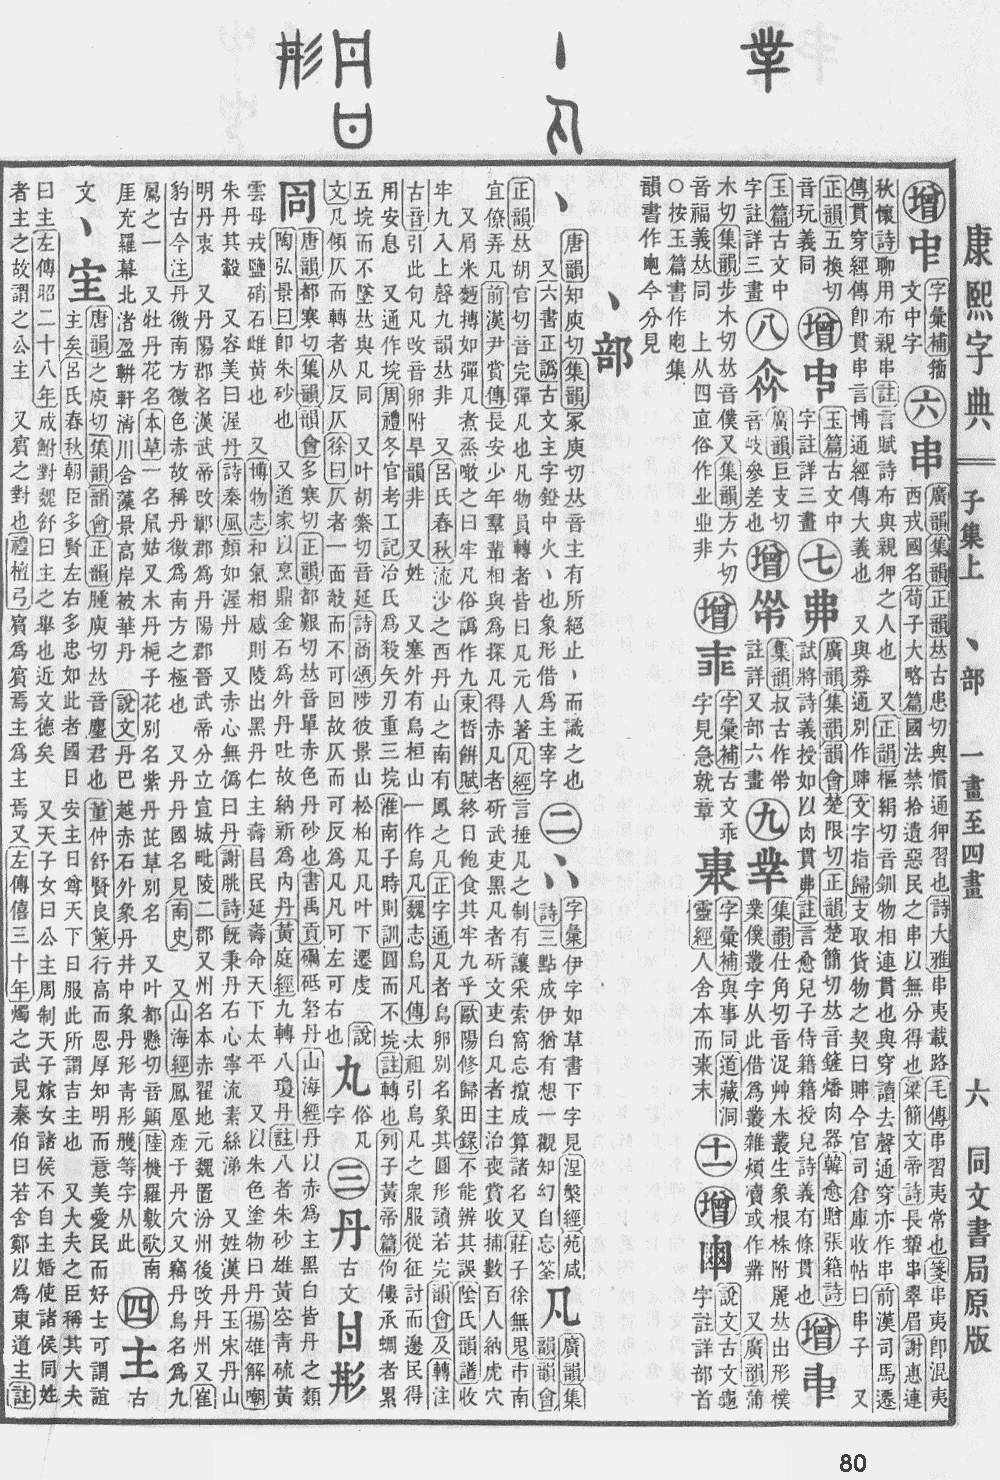 康熙字典 子集上 丶部 一畫至四畫 六 同文書局原版
增 字彙補籀文中字 六 串 廣韻集韻正韻𠀤古患切與慣通狎習也詩大雅串夷載路毛傳串習夷常也箋串夷卽混夷
西戎國名荀子大略篇國法禁拾遺惡民之串以無分得也梁簡文帝詩長顰串翠眉謝惠連
秋懷詩聊用布親串註言賦詩布與親狎之人也 又正韻樞絹切音釧物相連貫也與穿讀去聲通穿亦作串前漢司馬遷
傳貫穿經傳卽貫串言博通經傳大義也 又與丳通別作賗文字指歸支取貨物之契曰賗今官司倉庫收帖曰串子 又
正韻五換切音玩義同 增 玉篇古文中字註詳三畫 七 丳 廣韻集韻韻會楚限切正韻楚簡切𠀤音鏟燔肉器韓愈贈張籍詩
試將詩義授如以肉貫丳註言愈兒子侍籍籍授兒詩義有條貫也 增
玉篇古文中字註詳三畫 八 廣韻巨支切音岐參差也 增 集韻叔古作𢁥註詳又部六畫 九 丵 集韻仕角切音浞艸木叢生象根株附麗𠀤出形樸
業僕叢字从此借爲叢雜煩瀆或作䒳 又廣韻蒲
木切集韻步木切𠀤音僕又集韻方六切音福義𠀤同 上从四直俗作业业非 增 字彙補古文乖字見急就章 字彙補與事同道藏洞靈經人舍本而事末 十一 增 說文古文龜字註詳部首
○按玉篇書作𠁴集韻書作𠁴今分見
丶部
丶 唐韻知庾切集韻冢庾切𠀤音主有所絕止丶而識之也
又六書正譌古文主字鐙中火丶也象形借爲主宰字 二 字彙伊字如草書下字見涅槃經苑咸
詩三點成伊猶有想一觀知幻自忘筌 凡 廣韻集
正韻𠀤胡官切音完彈凡也凡物員轉者皆曰凡元人著凡經言捶凡之制有讓采索窩忘攛成算諸名又莊子徐無鬼市南
宜僚弄凡前漢尹賞傳長安少年羣輩相與爲探凡得赤凡者斫武吏黑凡者斫文吏白凡者主治喪賞收捕數百人納虎穴
又屑米麪摶如彈凡煮烝噉之曰牢凡俗譌作九束皙餅賦終日飽食其牢九乎歐陽修歸田錄不能辨其誤陰氏韻譜收
牢九入上聲九韻𠀤非 又呂氏春秋流沙之西丹山之南有鳳之凡正字通凡者鳥卵別名象其圓形讀若完韻會及轉注
古音引此句凡改音卵附旱韻非 又姓 又塞外有烏桓山一作烏凡魏志烏凡傳太祖引烏凡之衆服從征討而邊民得
用安息 又通作垸周禮冬官考工記冶氏爲殺矢刃重三垸淮南子時則訓圓而不垸註轉也列子黃帝篇佝僂承蜩者累
五垸而不墜𠀤與凡同 又叶胡縏切音延詩商頌陟彼景山松柏凡凡叶下遷虔 說 丸 俗凡字 三 丹 古文
文凡傾仄而轉者从反仄徐曰仄者一面敧而不可回故仄而可反爲凡凡可左可右也
同 唐韻都寒切集韻韻會多寒切正韻都艱切𠀤音單赤色丹砂也書禹貢礪砥砮丹山海經丹以赤爲主黑白皆丹之類
陶弘景曰卽朱砂也 又道家以烹鼎金石爲外丹吐故納新爲內丹黃庭經九轉八瓊丹註八者朱砂雄黃空靑硫黃
雲母戎鹽硝石雌黃也 又博物志和氣相感則陵出黑丹仁主壽昌民延壽命天下太平 又以朱色塗物曰丹揚雄解嘲
朱丹其轂 又容美曰渥丹詩秦風顏如渥丹 又赤心無僞曰丹謝朓詩旣秉丹石心寧流素絲涕 又姓漢丹玉宋丹山
明丹衷 又丹陽郡名漢武帝改鄣郡爲丹陽郡晉武帝分立宣城毗陵二郡又州名本赤翟地元魏置汾州後改丹州又崔
豹古今注丹徼南方徼色赤故稱丹徼爲南方之極也 又丹丹國名見南史 又山海經鳳凰產于丹穴又竊丹鳥名爲九
鳸之一 又牡丹花名本草一名鼠姑又木丹梔子花別名紫丹茈草別名 又叶都懸切音顚陸機羅敷歌南
厓充羅幕北渚盈軿軒淸川舍藻景高岸被華丹 說文丹巴越赤石外象丹井中象丹形靑彤雘等字从此 四 主 古
文 丶 𡧅 唐韻之庾切集韻韻會正韻腫庾切𠀤音麈君也董仲舒賢良策行高而恩厚知明而意美愛民而好士可謂誼
主矣呂氏春秋朝臣多賢左右多忠如此者國日安主日尊天下日服此所謂吉主也 又大夫之臣稱其大夫
曰主左傳昭二十八年成鮒對魏舒曰主之舉也近文德矣 又天子女曰公主周制天子嫁女諸侯不自主婚使諸侯同姓
者主之故謂之公主 又賓之對也禮檀弓賓爲賓焉主爲主焉又左傳僖三十年燭之武見秦伯曰若舍鄭以爲東道主註
80